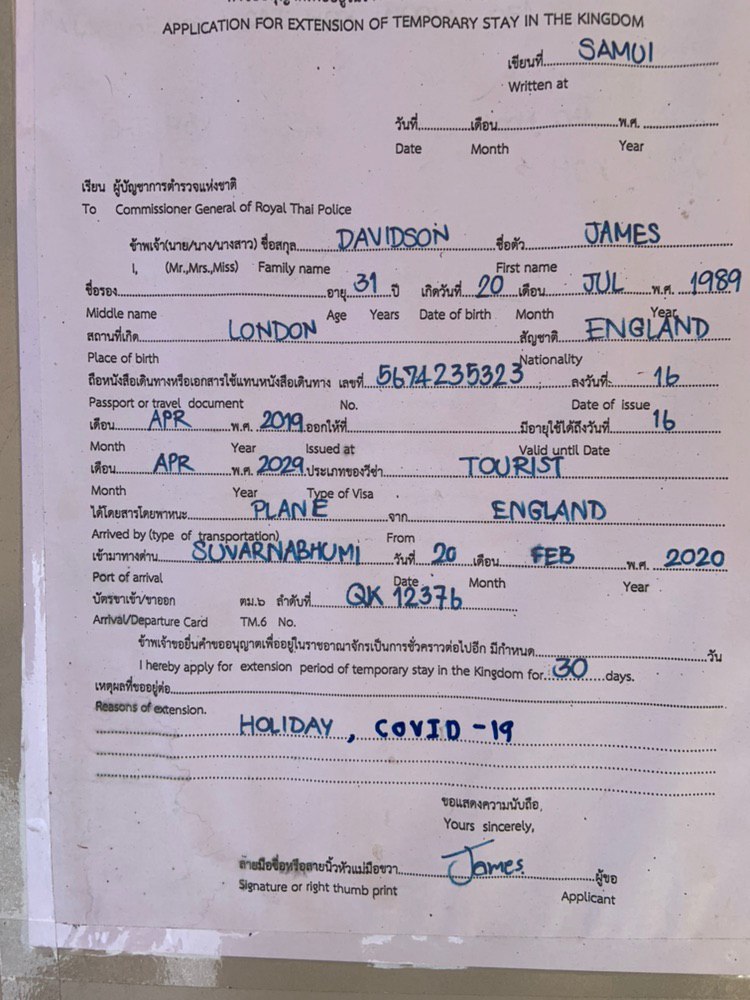 APPLICATION FOR EXTENSION OF TEMPORARY STAY IN THE KINGDOM
เขียนที่ SAMUI
Written at
วันที่ เดือน พ.ศ.
Date Month Year
เรียน ผู้บัญชาการตำรวจแห่งชาติ
To Commissioner General of Royal Thai Police
ข้าพเจ้า(นาย/นาง/นางสาว) ชื่อสกุล DAVIDSON ชื่อตัว JAMES
I, (Mr.,Mrs.,Miss) Family name First name
ชื่อรอง อายุ 31 ปี เกิดวันที่ 20 เดือน JUL พ.ศ. 1989
Middle name Age Years Date of birth Month Year
สถานที่เกิด LONDON สัญชาติ ENGLAND
Place of birth Nationality
ถือหนังสือเดินทางหรือเอกสารใช้แทนหนังสือเดินทาง เลขที่ 5674235323 ลงวันที่ 16
Passport or travel document No. Date of issue
เดือน APR พ.ศ. 2019 ออกให้ที่ มีอายุใช้ได้ถึงวันที่ 16
Month Year Issued at Valid until Date
เดือน APR พ.ศ. 2029 ประเภทของวีซ่า TOURIST
Month Year Type of Visa
ได้โดยสารโดยพาหนะ PLANE จาก ENGLAND
Arrived by (type of transportation) From
เข้ามาทางด่าน SUVARNABHUMI วันที่ 20 เดือน FEB พ.ศ. 2020
Port of arrival Date Month Year
บัตรขาเข้า/ขาออก ตม.๖ ลำดับที่ QK 12376
Arrival/Departure Card TM.6 No.
ข้าพเจ้าขอยื่นคำขออนุญาตเพื่ออยู่ในราชอาณาจักรเป็นการชั่วคราวต่อไปอีก มีกำหนด วัน
I hereby apply for extension period of temporary stay in the Kingdom for 30 days.
เหตุผลที่ขออยู่ต่อ
Reasons of extension.
HOLIDAY, COVID-19
ขอแสดงความนับถือ,
Yours sincerely,
ลายมือชื่อหรือลายนิ้วหัวแม่มือขวา James ผู้ขอ
Signature or right thumb print Applicant